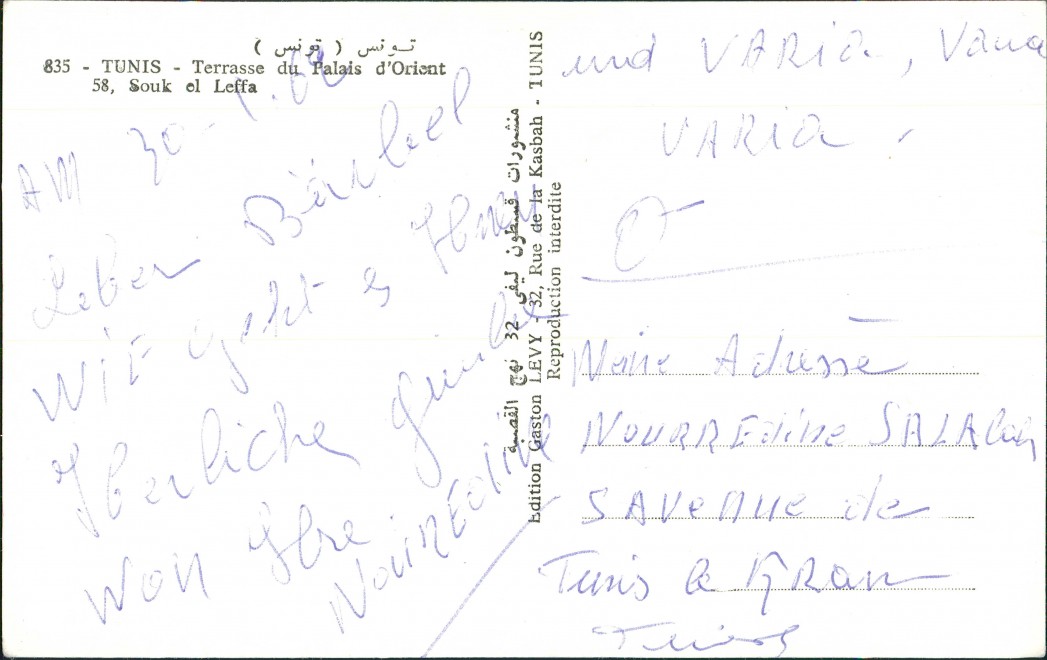 تونس ( تونس )
835 - TUNIS - Terrasse du Palais d'Orient
58, Souk el Leffa
AM 30
Lieber Bärbel
Wir geht es Ihnen
Herliche
Won Ihre
NourrEdine
Edition Gaston LEVY - 32, Rue de la Kasbah - TUNIS
Reproduction interdite
منشورات قسطون ليفي 32 نهج القصبة
und VARIA, Vana
VARIA
Meine Adresse
NOURREdine SALAlah
5 AVenue de
Tunis le KRam
Tunis